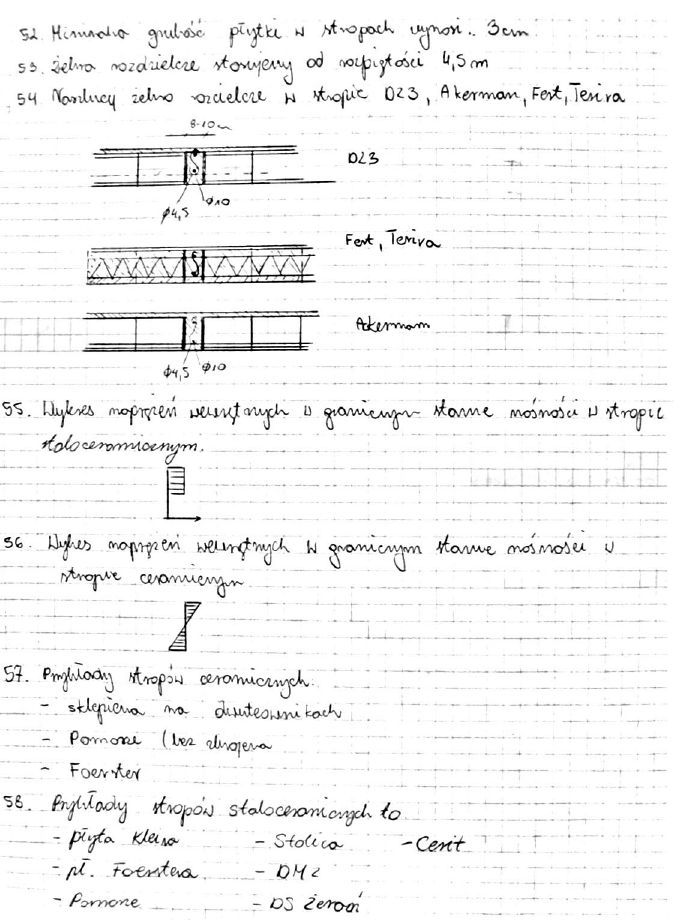 52. Minimalna grubość płytki w stropach wynosi.. 3cm
53. Żebra rozdzielcze stosujemy od rozpiętości 4,5m
54 Narysuj żebro rozdzielcze w stropie DZ3, Akerman, Fert, Teriva
8-10cm
DZ3
ϕ4,5 ϕ10
Fert, Teriva
Ackermam
ϕ4,5 ϕ10
55. Wykres naprężeń wewnętrznych w granicznym stanie nośności w stropie
staloceramicznym.
56. Wykres naprężeń wewnętrznych w granicznym stanie nośności w
stropie ceramicznym
57. Przykłady stropów ceramicznych:
- sklepienia na dwuteownikach
- Pomorze (bez zbrojenia
- Foerster
58. Przykłady stropów staloceramicznych to
- płyta Kleina - Stolica - Cerit
- pł. Foerstera - DMZ
- Pomorze - DS Żerań